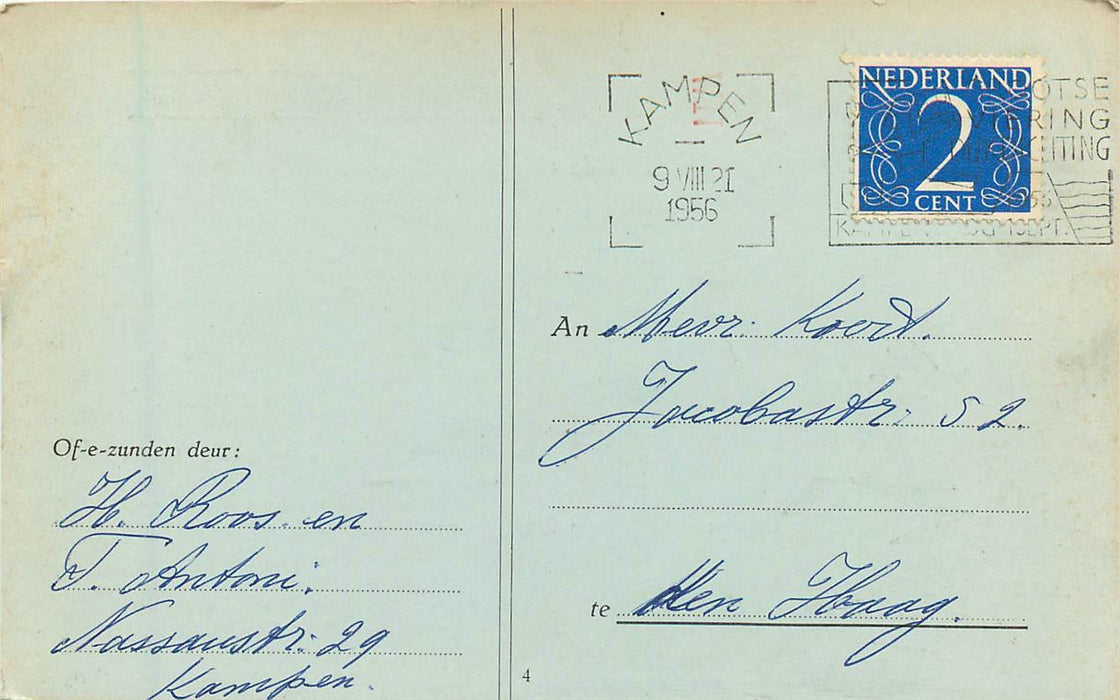 KAMPEN
9 VIII 21
1956
NEDERLAND
2
CENT
KAMPEN SEPT.
An Mevr. Koert.
Jacobastr. 52.
te Den Haag.
Of-e-zunden deur:
H. Roos en
T. Antoni.
Nassaustr. 29
Kampen.
4